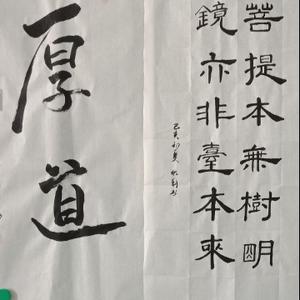 菩提本無樹明
鏡亦非臺本來
己亥初夏
厚道